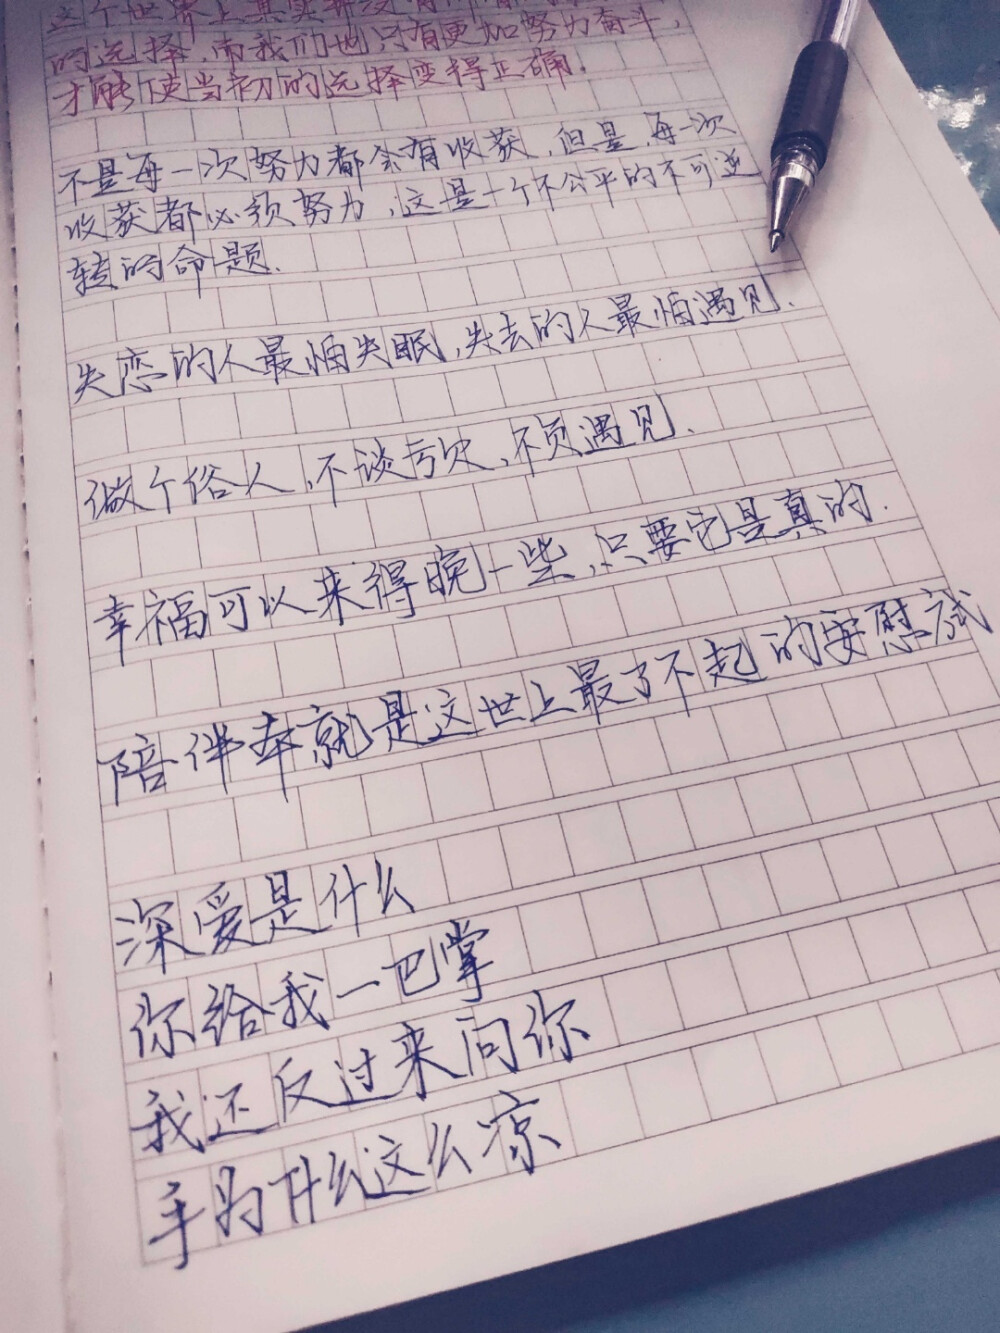 这个世界上其实并没有
的选择,而我们也只有更加努力奋斗,
才能使当初的选择变得正确.
不是每一次努力都会有收获,但是,每一次
收获都必须努力,这是一个不公平的不可逆
转的命题.
失恋的人最怕失眠,失去的人最怕遇见.
做个俗人,不谈亏欠,不负遇见.
幸福可以来得晚一些,只要它是真的.
陪伴本就是这世上最了不起的安慰
深爱是什么
你给我一巴掌
我还反过来问你
手为什么这么凉